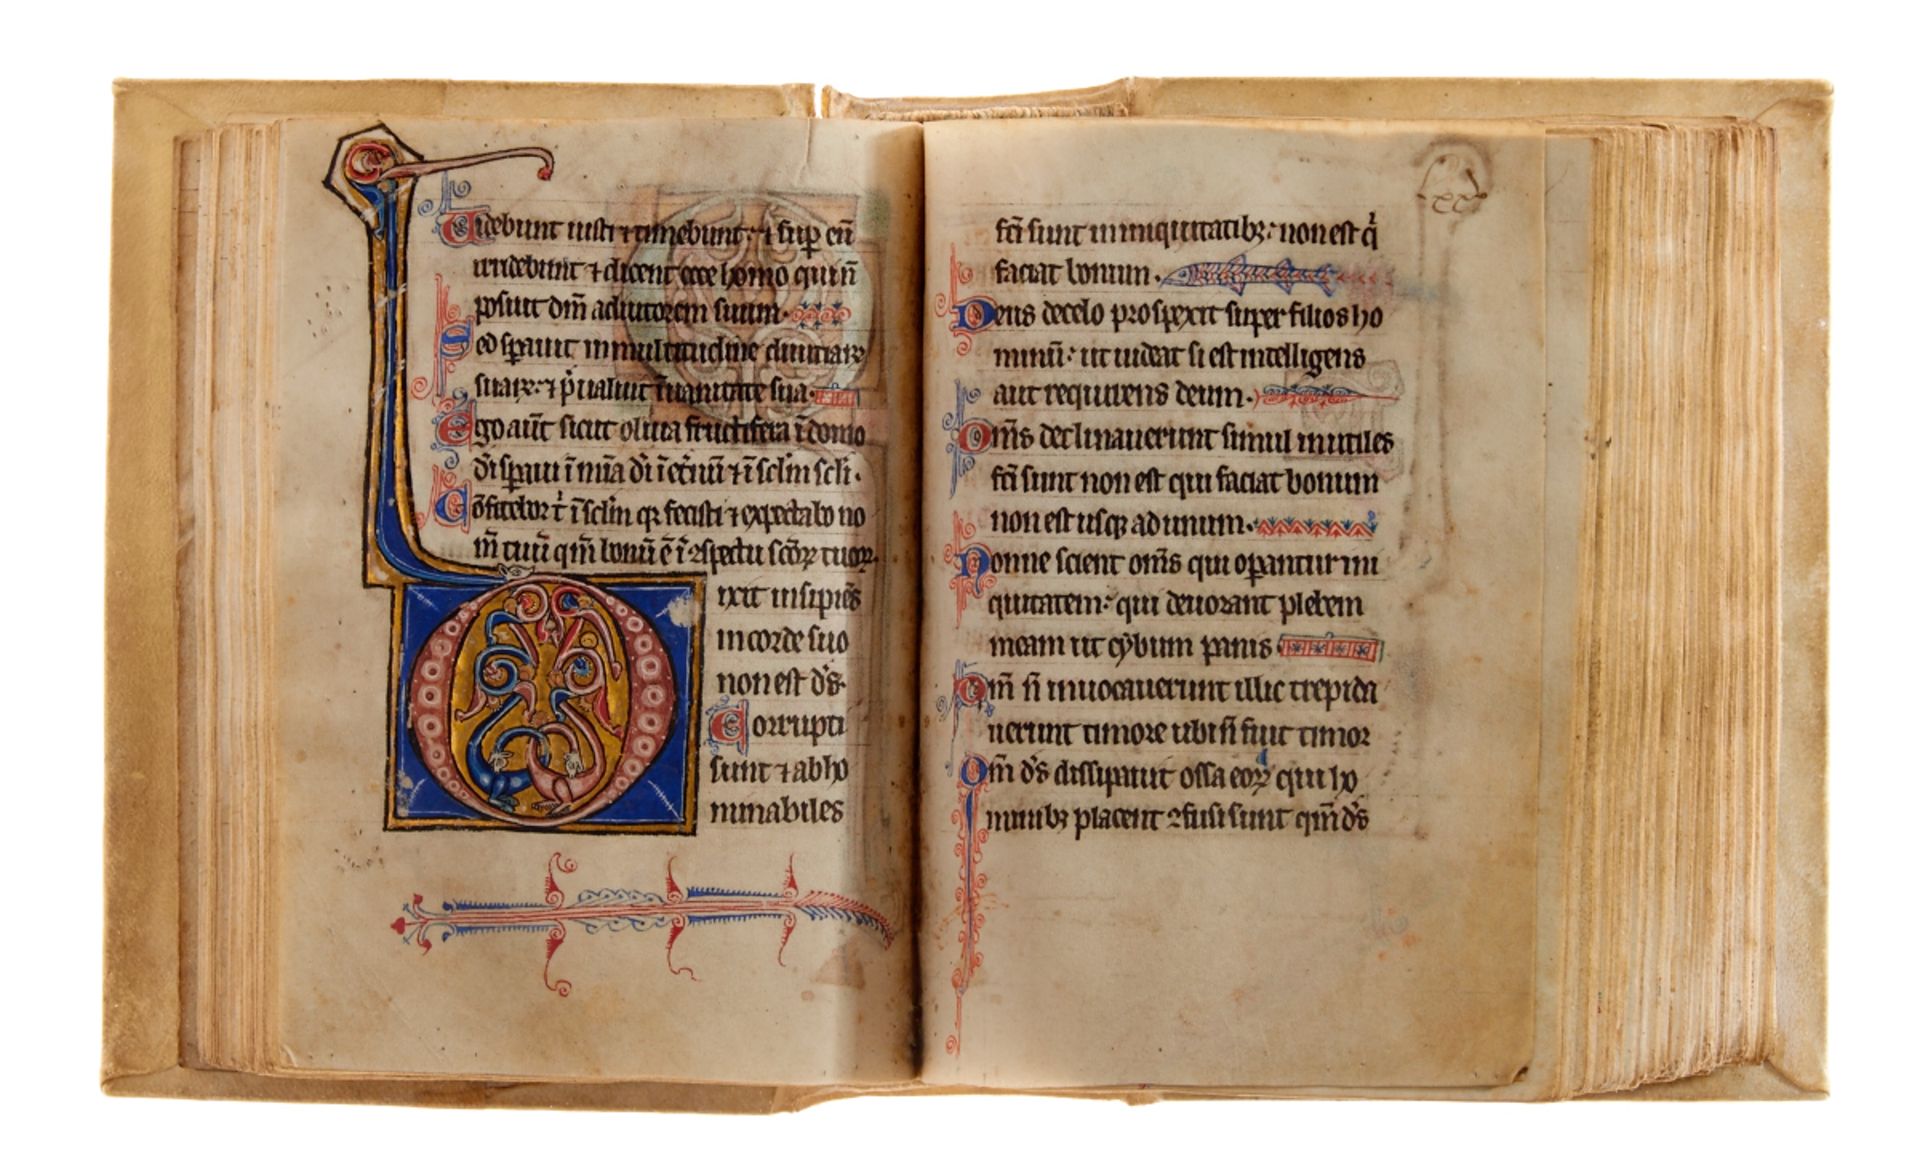 Uidebunt iusti ⁊ timebunt: ⁊ sup̱ eū
uidebunt ⁊ dicent ecce homo qui ñ
posuit dm̄ adiutorem suum.
Sed sp̱auit in multitudine diuitiaꝝ
suaꝝ: ⁊ p̄ualuit ī uanitate sua.
Ego aut̄ sicut oliua fructifera ī domo
dī sp̱aui ī mīa dī ī et̄nū ⁊ ī sclm̄ scli.
Cōfitebor t̄ ī sclm̄ qꝫ fecisti ⁊ expectabo no
m̄ tuū qm̄ bonū ē ī ꝯspectu scōꝝ tuoꝝ.
Dixit insipiēs
in corde suo
non est ds̄.
Corrupti
sunt ⁊ abho
minabiles
fc̄i sunt in iniquitatibꝫ: non est q̄
faciat bonum.
Deus de celo prospexit super filios ho
minū: ut uideat si est intelligens
aut requirens deum.
Om̄s declinauerunt simul inutiles
fc̄i sunt non est qui faciat bonum
non est usqꝫ ad unum.
Nonne scient om̄s qui op̱antur ini
quitatem: qui deuorant plebem
meam ut cybum panis
Dm̄ ñ inuocauerunt illic trepida
uerunt timore ubi ñ fuit timor
Qm̄ ds̄ dissipauit ossa eoꝝ qui ho
minibꝫ placent ꝯfusi sunt qm̄ ds̄